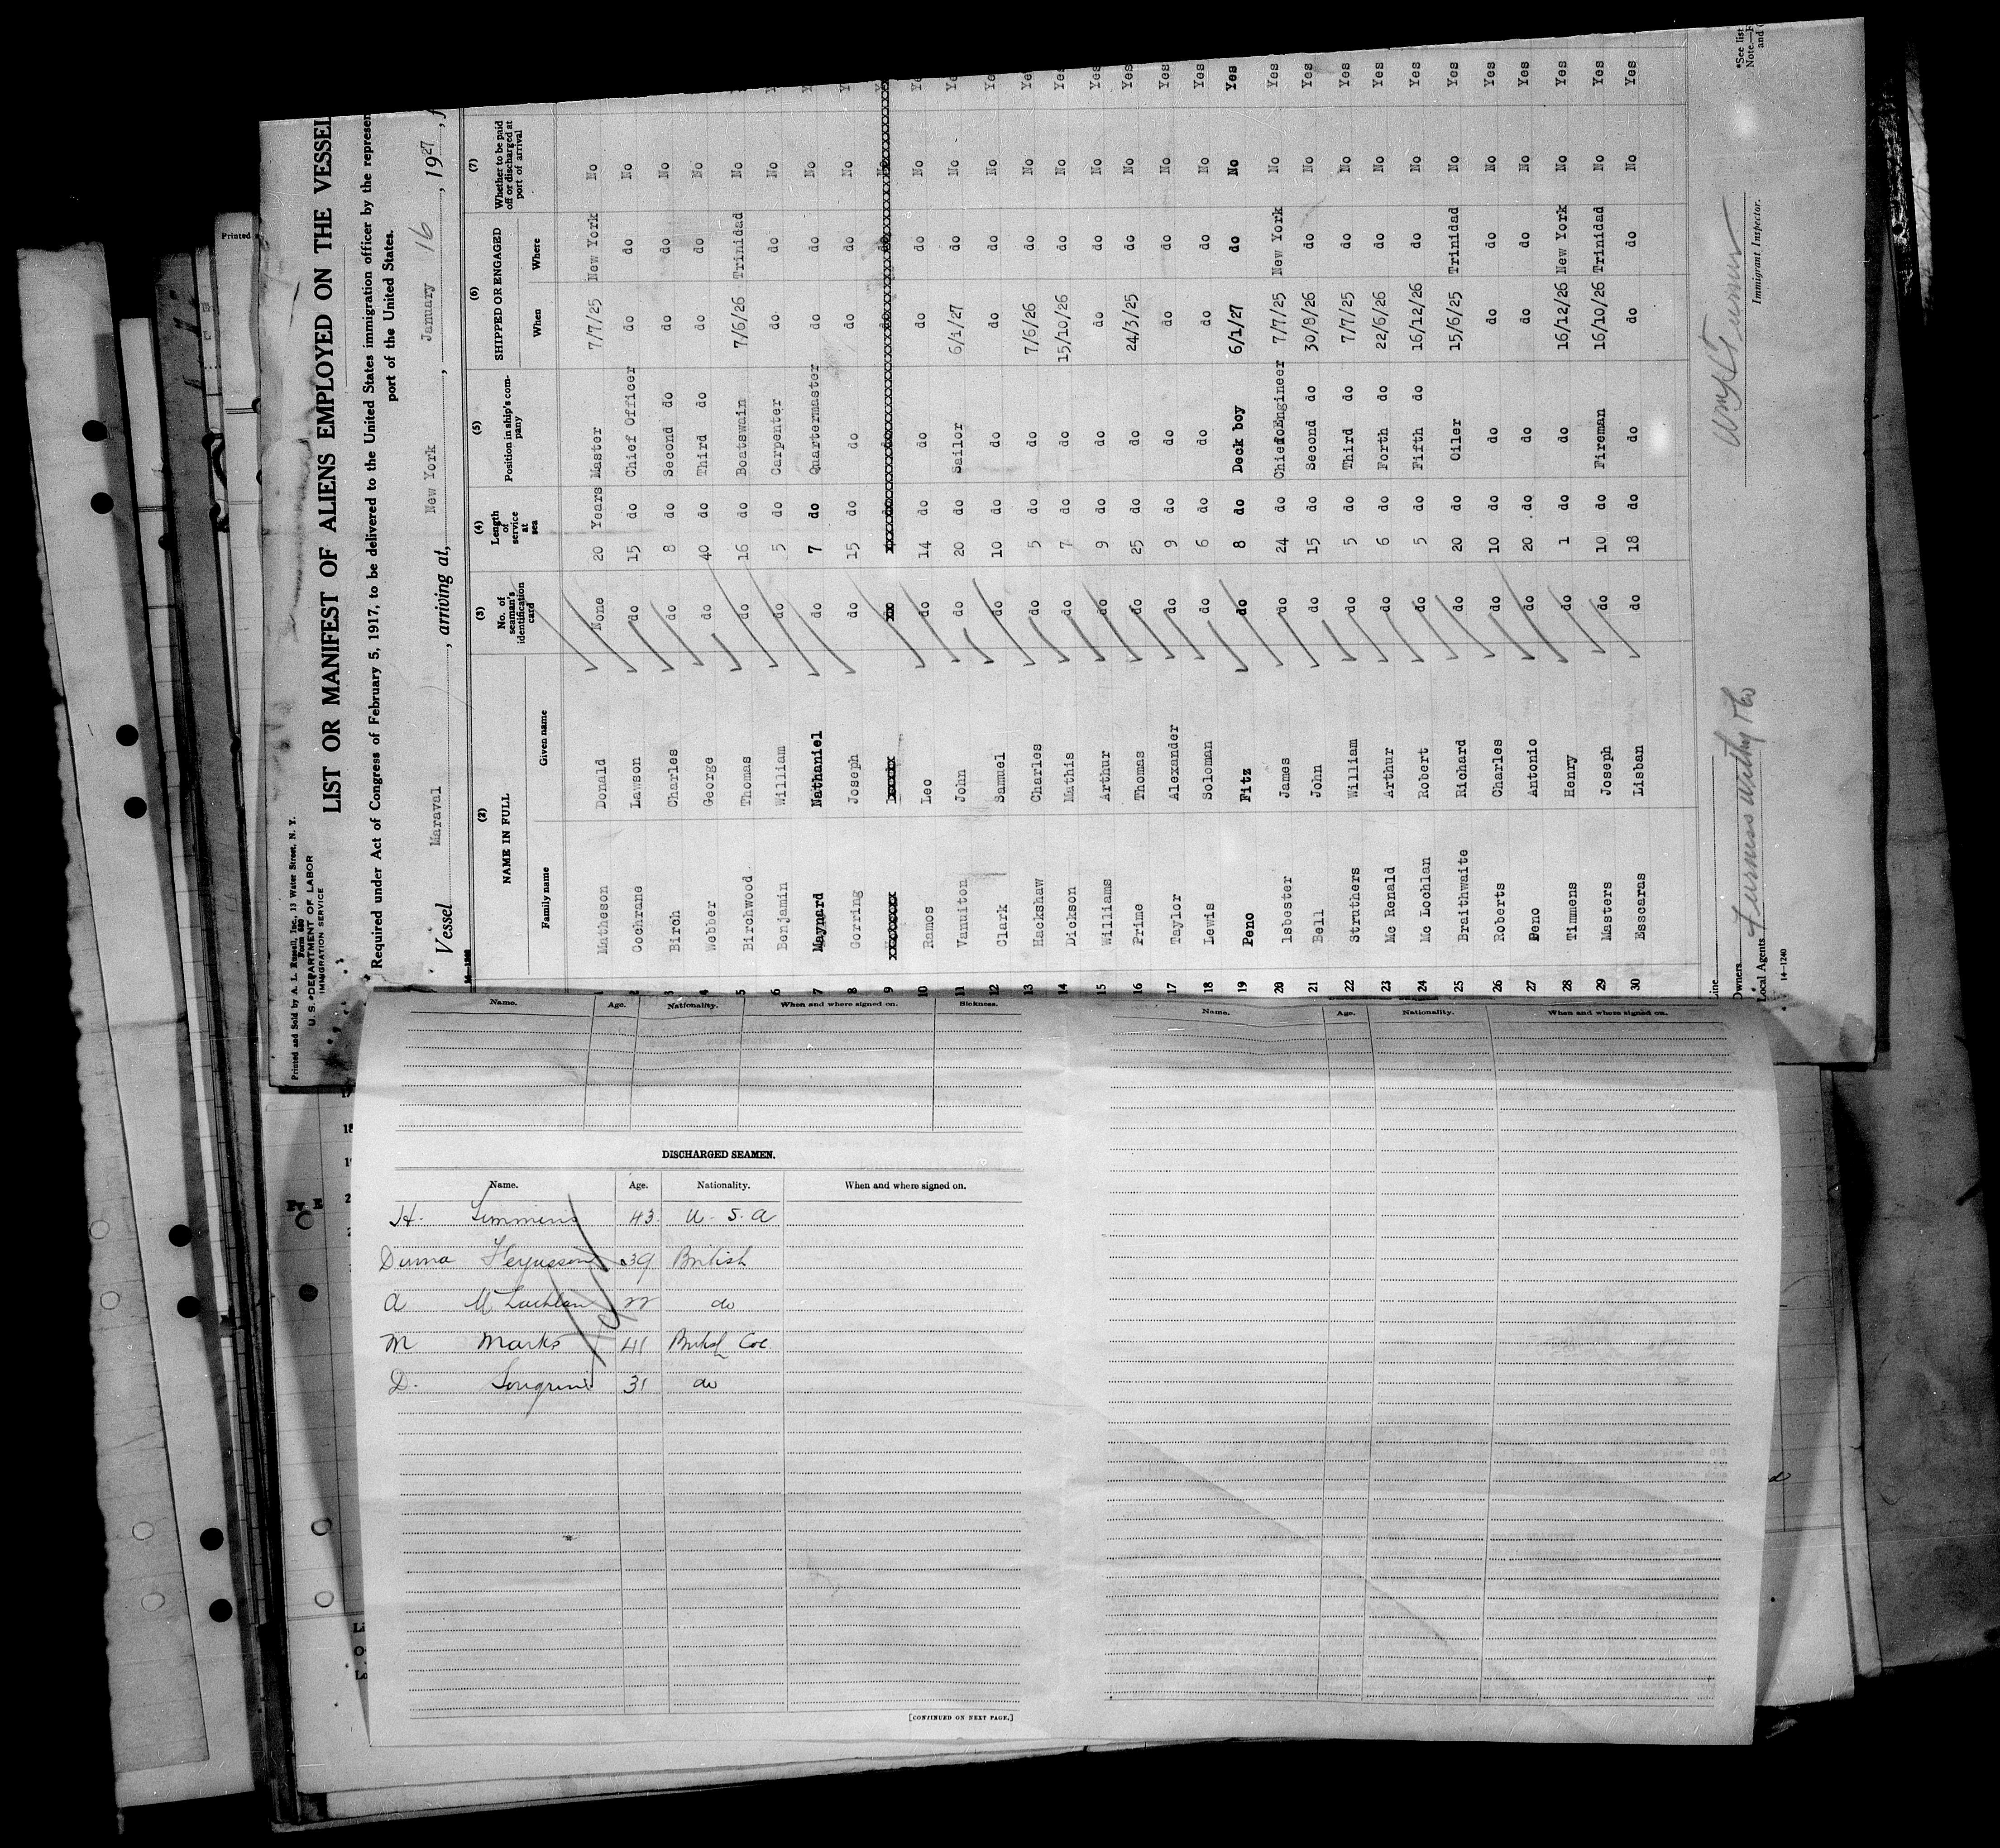 Printed and Sold by A. L. Russell, Inc., 13 Water Street, N. Y.
Form 680
U. S. DEPARTMENT OF LABOR
IMMIGRATION SERVICE
LIST OR MANIFEST OF ALIENS EMPLOYED ON THE VESSEL
Required under Act of Congress of February 5, 1917, to be delivered to the United States immigration officer by the represen
port of the United States.
Vessel Maraval , arriving at, New York , January 16 , 1927, f
(2) (3) (4) (5) (6) (7)
NAME IN FULL No. of seaman's identification card Length of service at sea Position in ship's company SHIPPED OR ENGAGED Whether to be paid off or discharged at port of arrival
Family name Given name When Where
1 Matheson Donald None 20 Years Master 7/7/25 New York No Yes
2 Cochrane Lawson do 15 do Chief Officer do do No Yes
3 Birch Charles do 8 do Second do do do No Yes
4 Webber George do 40 do Third do do do No Yes
5 Birchwood Thomas do 16 do Boatswain 7/6/26 Trinidad No Y
6 Benjamin William do 5 do Carpenter do do No Y
7 Maynard Nathaniel do 7 do Quartermaster do do No Y
8 Gorring Joseph do 15 do do do do No Y
9
10 Ramos Leo do 14 do do do do No Ye
11 Vanuiton John do 20 do Sailor 6/1/27 do No Yes
12 Clark Samuel do 10 do do do do No Yes
13 Hackshaw Charles do 5 do do 7/6/26 do No Yes
14 Dickson Mathis do 7 do do 15/10/26 do No Yes
15 Williams Arthur do 9 do do do do No Yes
16 Prime Thomas do 25 do do 24/3/25 do No Yes
17 Taylor Alexander do 9 do do do do No Yes
18 Lewis Soloman do 6 do do do do No Yes
19 Peno Fitz do 8 do Deck boy 6/1/27 do No Yes
20 Isbester James do 24 do Chief Engineer 7/7/25 New York No Yes
21 Bell John do 15 do Second do 30/8/26 do No Yes
22 Struthers William do 5 do Third do 7/7/25 do No Yes
23 Mc Renald Arthur do 6 do Forth do 22/6/26 do No Yes
24 Mc Lochlan Robert do 5 do Fifth do 16/12/26 do No Yes
25 Braithwaite Richard do 20 do Oiler 15/6/25 Trinidad No Yes
26 Roberts Charles do 10 do do do do No Yes
27 Peno Antonio do 20 do do do do No Yes
28 Timmens Henry do 1 do do 16/12/26 New York No Yes
29 Masters Joseph do 10 do Fireman 16/10/26 Trinidad No Yes
30 Esscaras Lisban do 18 do do do do No Yes
Line
Owners
Local Agents Furness Withy & Co
Immigrant Inspector.
14—1240
*See list
Note.—
and
Name. Age. Nationality. When and where signed on. Sickness.
Name. Age. Nationality. When and where signed on.
DISCHARGED SEAMEN.
Name. Age. Nationality. When and where signed on.
H. Timmens 43 U. S. A
Duma Fergusson 39 British
A Mc Lachlan 22 do
M Marks 41 British Col
D. 31 do
[CONTINUED ON NEXT PAGE.]
Printed